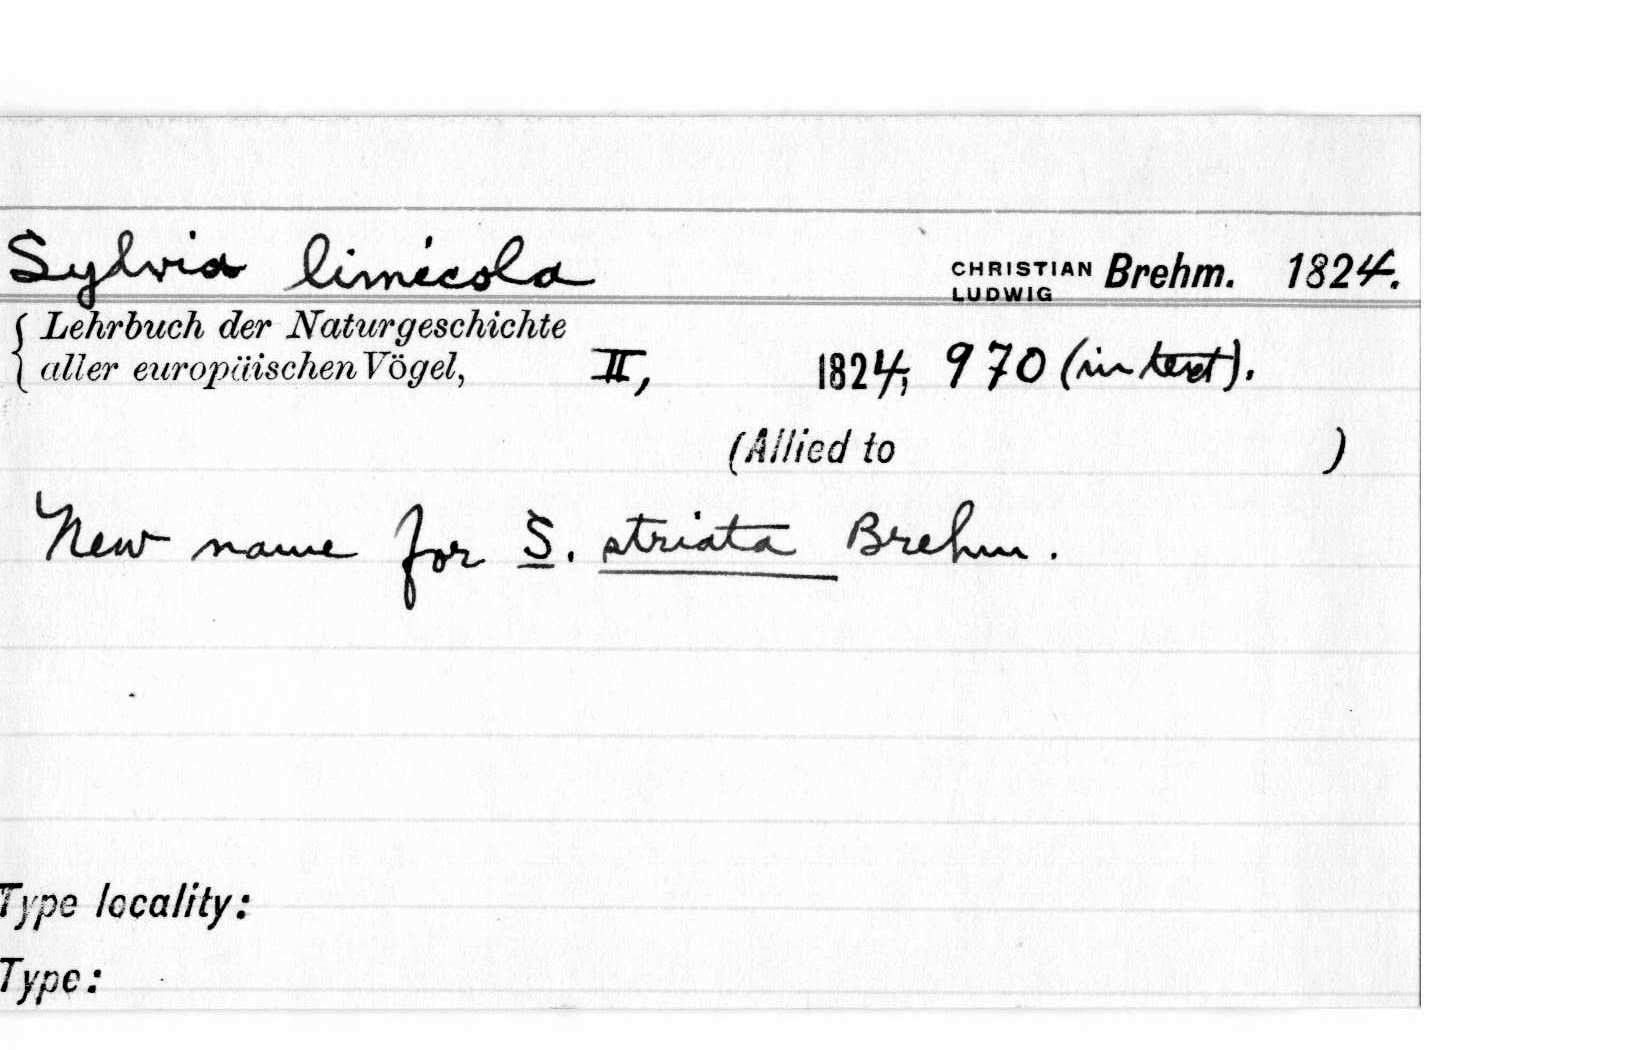 Sylvia limicola CHRISTIAN LUDWIG Brehm. 1824.
Lehrbuch der Naturgeschichte
aller europäischen Vögel, II, 1824, 970 (in text).
(Allied to )
New name for S. striata Brehm.
Type locality:
Type: